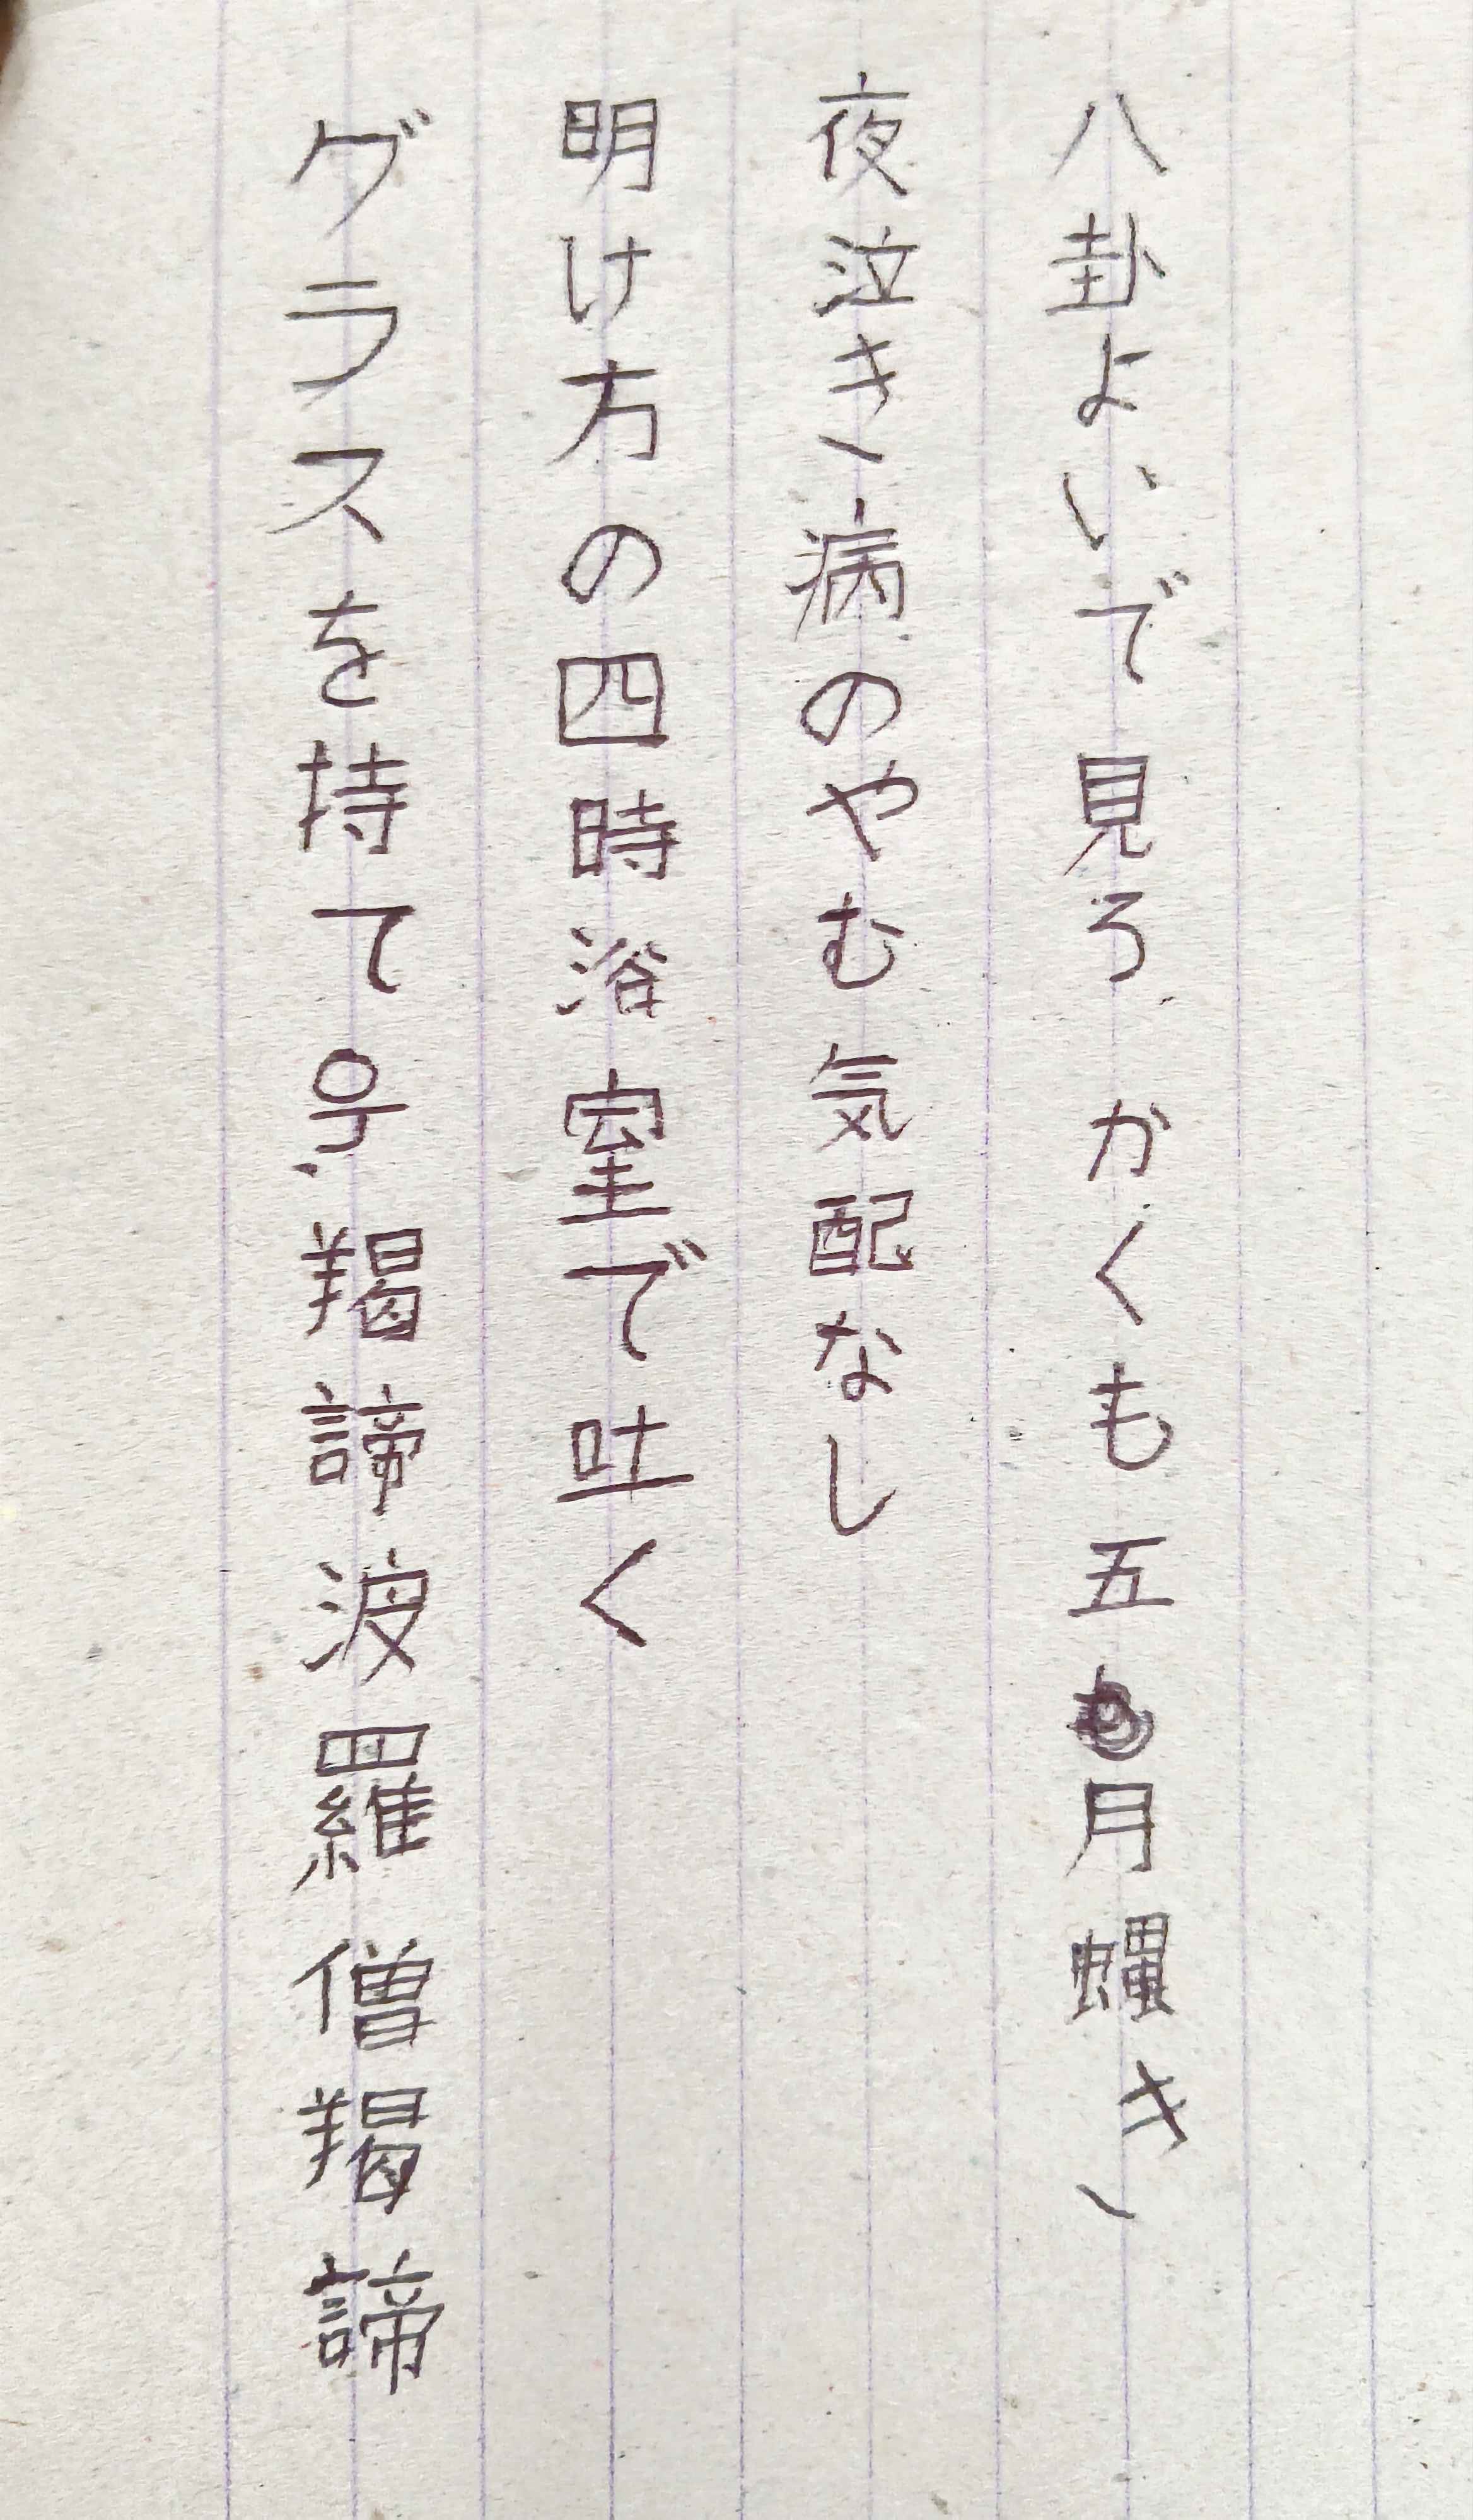 八卦よいで見ろかくも五月蝿き
夜泣き病のやむ気配なし
明け方の四時浴室で吐く
グラスを持て号羯諦波羅僧羯諦